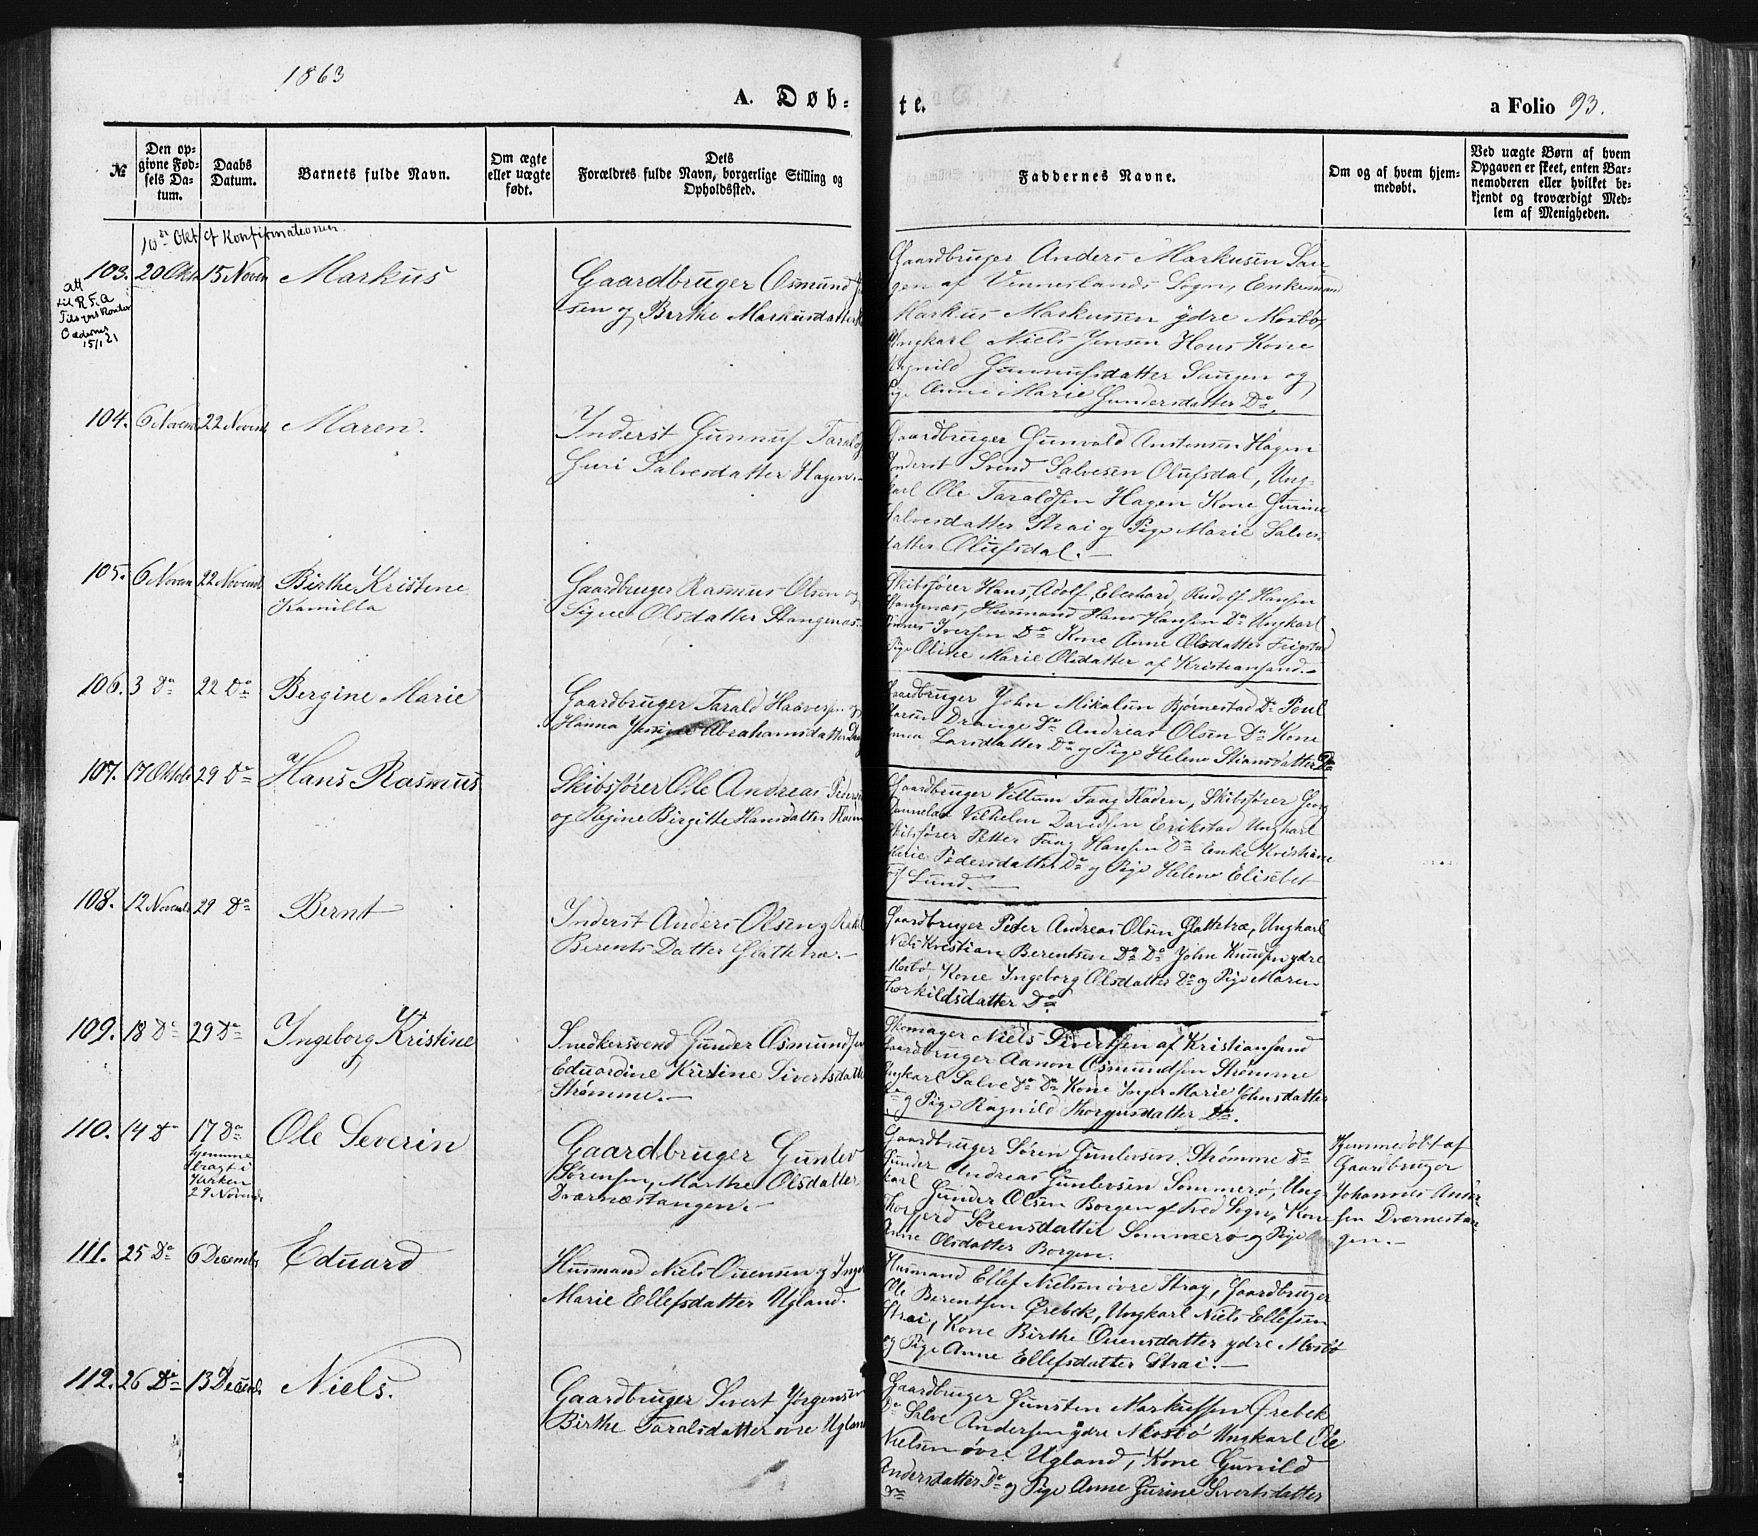 1863
A. Døb-
te.
a Folio 93.
№
Den op-
givne Fød-
sels Da-
tum.
Daabs
Datum.
Barnets fulde Navn.
Om ægte
eller uægte
født.
Dets
Forældres fulde Navn, borgerlige Stilling og
Opholdssted.
Faddernes Navne.
Om og af hvem hjem-
medøbt.
Ved uægte Børn af hvem
Opgaven er skeet, enten Bar-
nemoderen eller hvilket be-
kjendt og troværdigt Med-
lem af Menigheden.
10de Okt ef Konfirmationen
103. 20 Okt 15 Novem Markus
att
til R.F.A
15/1 21
Gaardbruger Osmund
sen og Berthe Markusdatter
Gaardbruger Anders Markusen Sau-
gen af Vennerslands Sogn, Enkemand
Markus Markussen ydre Mosbø,
Ungkarl Niels Jensen Hans Kone
Ragnild Gunnufsdatter Saugen og
Pige Anne Marie Gundersdatter Do.
104. 6 Novem 22 Novem Maren.
Inderst Gunnuf Tarald
Guri Salvesdatter Hagen.
Gaardbruger Gunvald Anstensen Hagen
Inderst Svend Salvesen Olufsdal, Ung-
karl Ole Taraldsen Hagen Kone Gurine
Salvesdatter Strai og Pige Marie Salves
datter Olufsdal.
105. 6 Novem 22 Novemb Birthe Kristene
Kamilla
Gaardbruger Rasmus Olsen og
Signe Olsdatter Stangenæs
Skibsfører Hans, Adolf, Eberhard, Rudolf Hansen
Stangenæs, Husmand Hans Hansen Do Ungkarl
Tønnes Iversen Do Kone Anne Olsdatter
Pige Oline Marie Olsdatter af Kristiansand.
106. 3 Do 22 Do Bergine Marie
Gaardbruger Tarald Haaversen og
Hanna Abrahamsdatter
Gaardbruger John Mikalsen Bjørnestad Do Poul
Larsen Drange Do Andreas Olsen Do Kone
Anna Larsdatter Do og Pige Helene Stiansdatter Do
107. 17 Oktob 29 Do Hans Rasmus
Skibsfører Ole Andreas Pedersen
og Regine Birgitte Hansdatter
Gaardbruger Villum Faag Staden, Skibsfører Georg
Danielau Vilhelm Davidsen Erikstad Ungkarl
Skibsfører Petter Faag Hansen Do Enke Kristiane
Marie Pedersdatter Do og Pige Helene Elisabet
af Lund.
108. 12 Novemb 29 Do Bernt
Inderst Anders Olsen og Rakel
Berents Datter Slattetræ.
Gaardbruger Peder Andreas Olsen Slattetræ, Ungkarl
Niels Kristian Berentsen Do Do John Knudsen ydre
Mosbø, Kone Ingeborg Olsdatter Do og Pige Maren
Thorkildsdatter Do
109. 18 Do 29 Do Ingeborg Kristine
Snedkersvend Gunder Osmundsen
Eduardine Kristine Sivertsdatter
Strømme.
Skomager Niels Sivertsen af Kristiansand
Gaardbruger Aanon Osmundsen Strømme
Ungkarl Salve Do Do Kone Inger Marie Johnsdatter
Do og Pige Ragnild Thorgusdatter Do.
110. 14 Do 17 Do Ole Severin
hjemme
bragt i
Kirken
29 Novemb
Gaardbruger Gunlev
Sørensen, Marthe Olsdatter
Dværnæstangen.
Gaardbruger Søren Gunlevsen, Strømme Do
Gunder Andreas Gunlevsen Sommerø, Ung-
karl Gunder Olsen Borgen af Tved Sogn, Kone
Thorgjerd Sørensdatter Sommerø og Pige
Anne Olsdatter Borgen.
Hjemmedøbt af
Gaardbruger
Johannes Ander-
sen Dværnestan-
gen.
111. 25 Do 6 Decemb Eduard
Husmand Niels Ouensen og Inger
Marie Ellefsdatter Ugland.
Husmand Ellef Nielsen øvre Stray, Gaardbruger
Ole Berentsen Ørebek, Ungkarl Niels Ellefsen
Strai, Kone Birthe Ouensdatter ydre Mosbø
og Pige Anne Ellefsdatter Strai.
112. 26 Do 13 Decemb Niels.
Gaardbruger Sivert Jørgensen
Birthe Taralsdatter øvre Ugland
Gaardbruger Gunsten Markussen Ørebek
Do Salve Andersen ydre Mosbø Ungkarl Ole
Nielsen øvre Ugland, Kone Gunild
Andersdatter Do og Pige Anne Gurine Sivertsdatter
Do